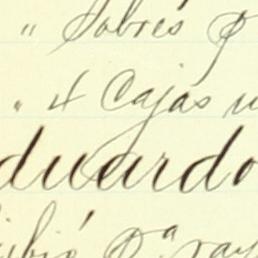 " Sobres P
" 4 Cajas
duardo
ibió Pª ray